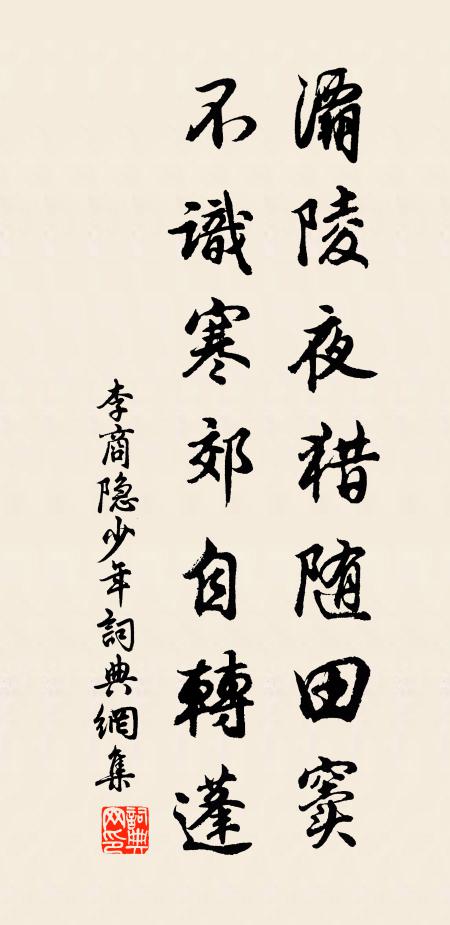 灞陵夜猎随田窦
不識寒郊自轉蓬
李商隐少年詞典網集
詞典网印